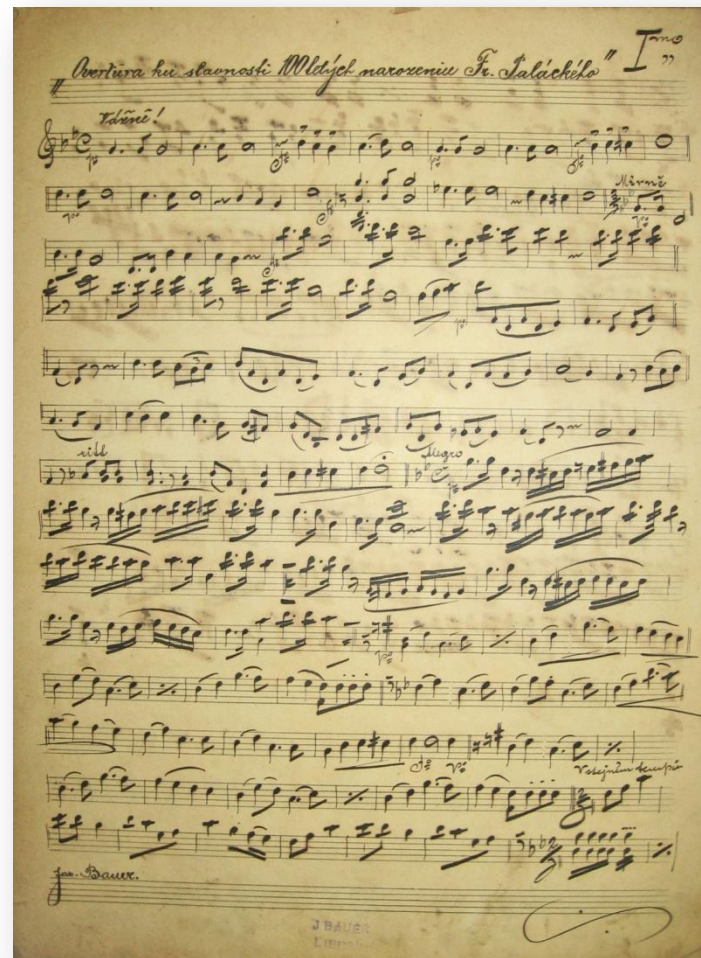 „Overtura ku slavnosti 100letých narozenin Fr. Palackého” Imo
Vážně!
Mírně
ritd
Alegro
V stejném tempu
Jan. Bauer.
J BAUER